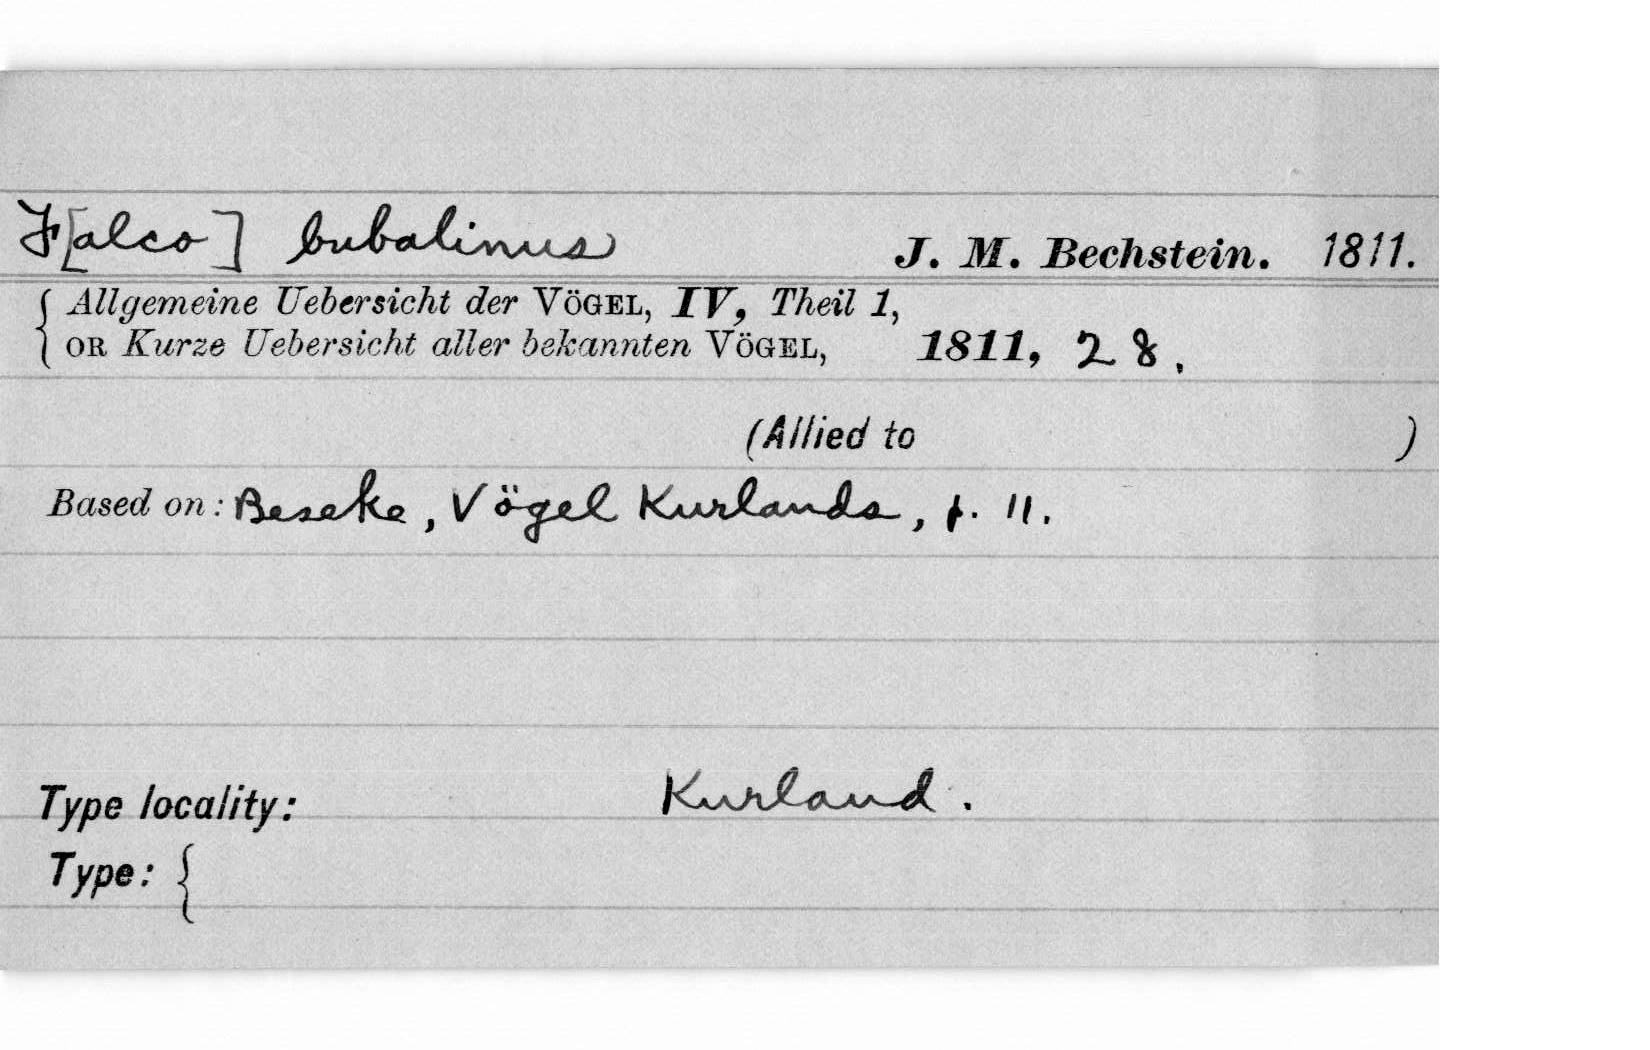 F[alco] bubalinus J. M. Bechstein. 1811.
{ Allgemeine Uebersicht der VÖGEL, IV, Theil 1,
OR Kurze Uebersicht aller bekannten VÖGEL, 1811, 28.
(Allied to )
Based on: Beseke, Vögel Kurlands, p. 11.
Type locality: Kurland.
Type: {